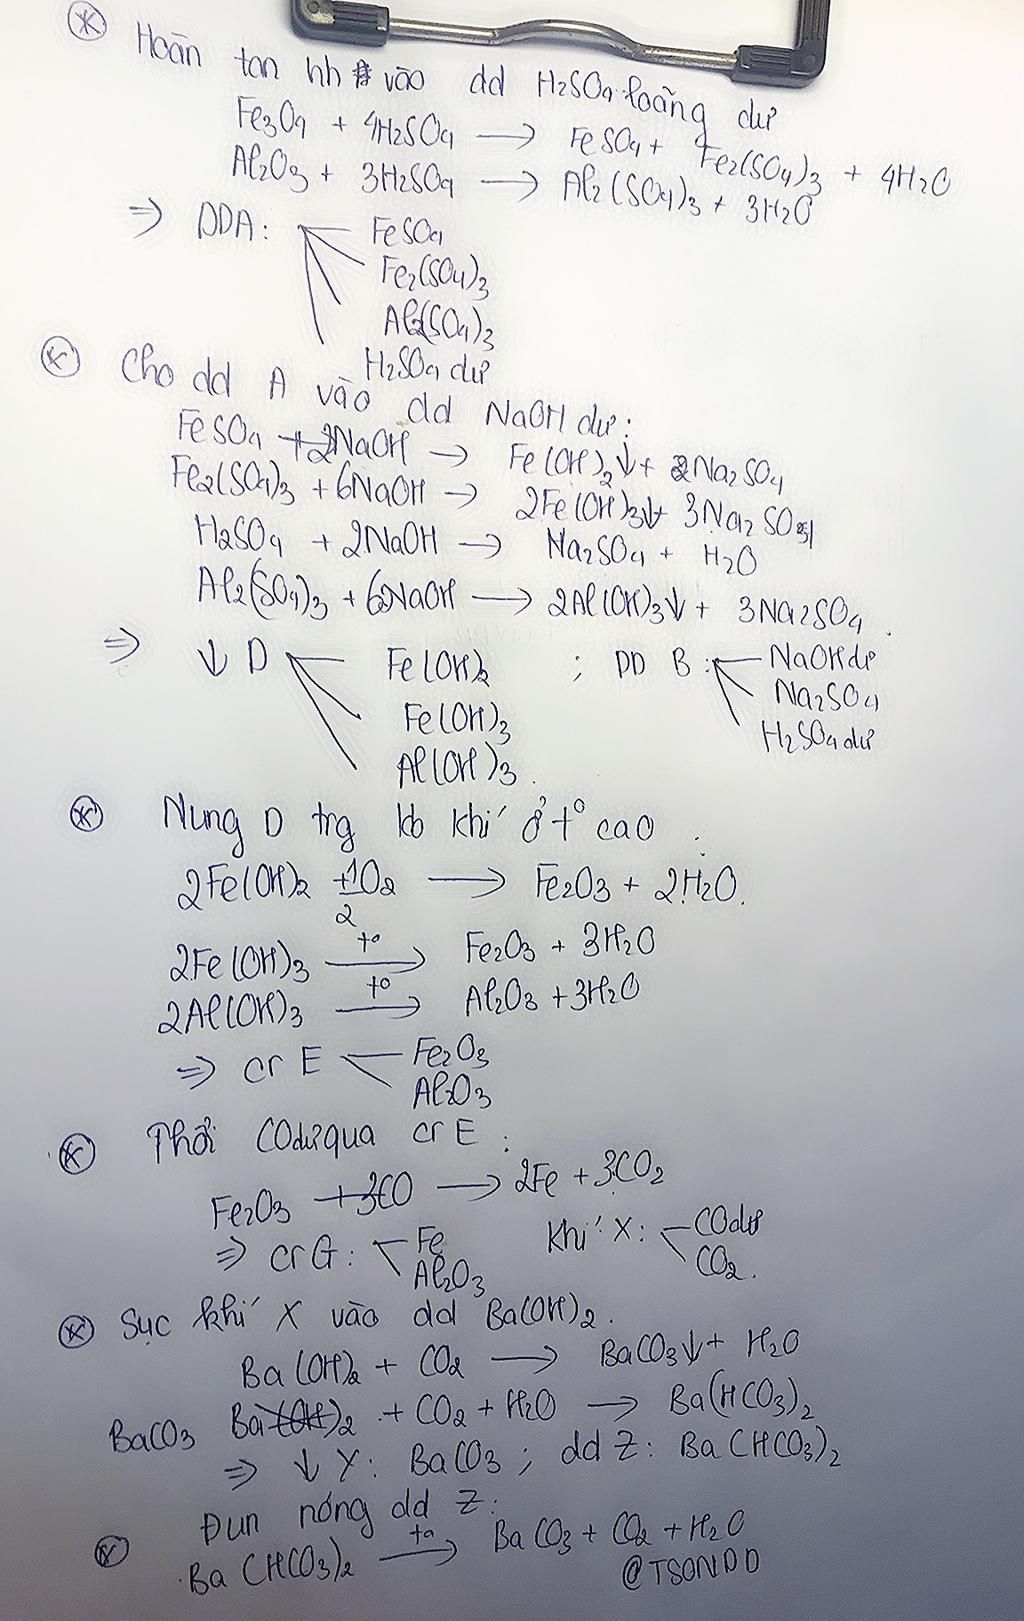 Hoàn tan hh vào dd H2SO4 loãng dư
Fe3O4 + 4H2SO4 → FeSO4 + Fe2(SO4)3 + 4H2O
Al2O3 + 3H2SO4 → Al2(SO4)3 + 3H2O
⇒ DDA: FeSO4
Fe2(SO4)3
Al2(SO4)3
H2SO4 dư
Cho dd A vào dd NaOH dư:
FeSO4 + 2NaOH → Fe(OH)2↓ + Na2SO4
Fe2(SO4)3 + 6NaOH → 2Fe(OH)3↓ + 3Na2SO4
H2SO4 + 2NaOH → Na2SO4 + H2O
Al2(SO4)3 + 6NaOH → 2Al(OH)3↓ + 3Na2SO4.
⇒ ↓ D Fe(OH)2 ; DD B: NaOH dư
Fe(OH)3 Na2SO4
Al(OH)3. H2SO4 dư
Nung D trg kb khí ở t° cao.
2Fe(OH)2 + 1/2 O2 → Fe2O3 + 2H2O.
2Fe(OH)3 t°→ Fe2O3 + 3H2O
2Al(OH)3 t°→ Al2O3 + 3H2O
⇒ cr E Fe2O3
Al2O3
Thổi CO dư qua cr E:
Fe2O3 + 3CO → 2Fe + 3CO2
⇒ cr G: Fe Khí X: CO dư
Al2O3 CO2.
Sục khí X vào dd Ba(OH)2.
Ba(OH)2 + CO2 → BaCO3↓ + H2O
BaCO3 + CO2 + H2O → Ba(HCO3)2
⇒ ↓ Y: BaCO3 ; dd Z: Ba(HCO3)2
Đun nóng dd Z:
Ba(HCO3)2 t°→ BaCO3 + CO2 + H2O
@TSONDD